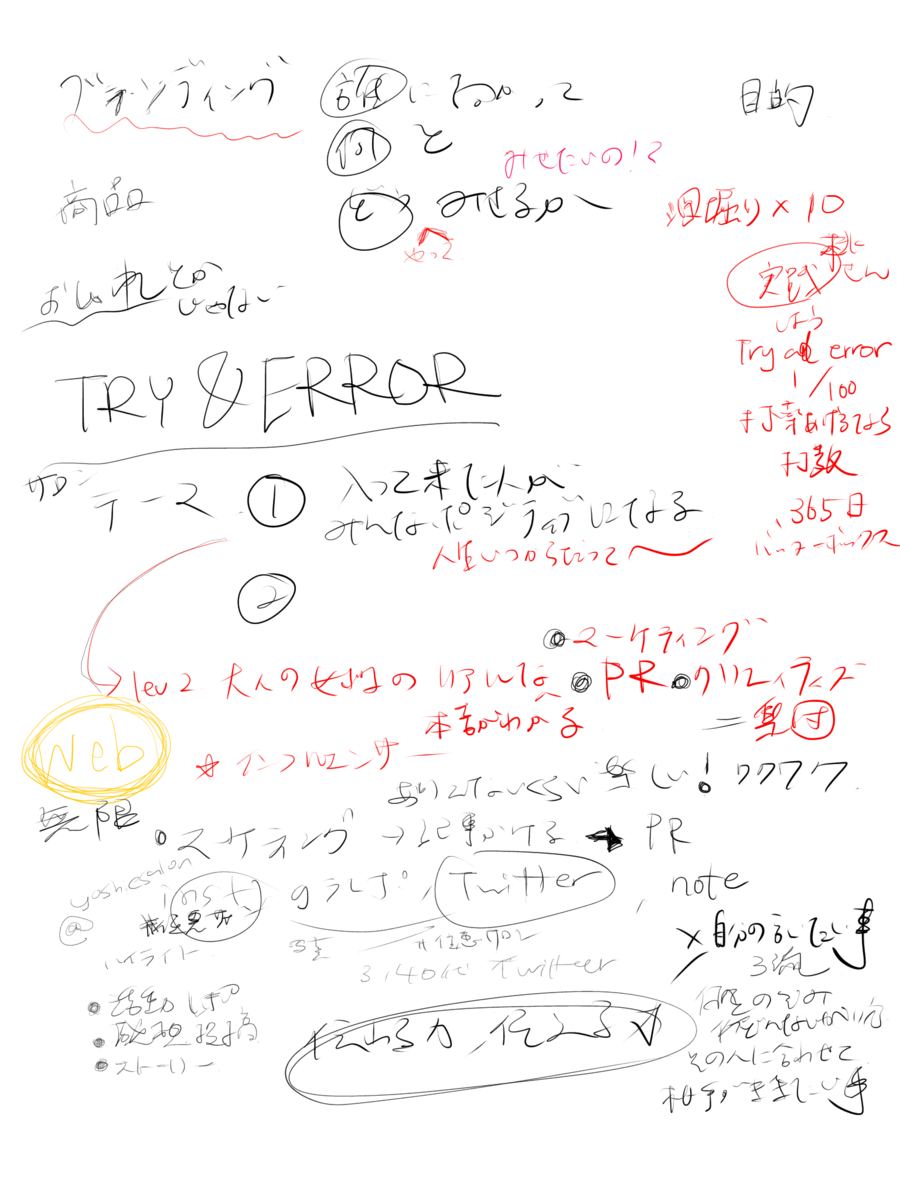 ブランディング
誰に
何を
どう みせるか
やって
みせたいの!?
目的
商品
おしゃれとか
じゃない
深掘り×10
実践
しよう
Try and error
1/100
打率あげるなら
打数
365日
バッターボックス
TRY & ERROR
サロン
テーマ ① 入って来た人が
みんなポジティブになる
人生いつからだって〜
②
マーケティング
→ lev 2 大人の女性の リアルな PR クリエイティブ
本音がわかる
= 集団
Web
☆ インフルエンサー
無限
ありえないくらい楽しい! ワクワク
スケティング → 記事かける → PR
@ yoshiesalon
insta
ハイライト
gラレポ, Twitter
3,40代 Twitter
note
×自分の言いたい事
活動レポ
感想投稿
ストーリー
伝わる力 伝える力
その人に合わせて
相手がききたい事